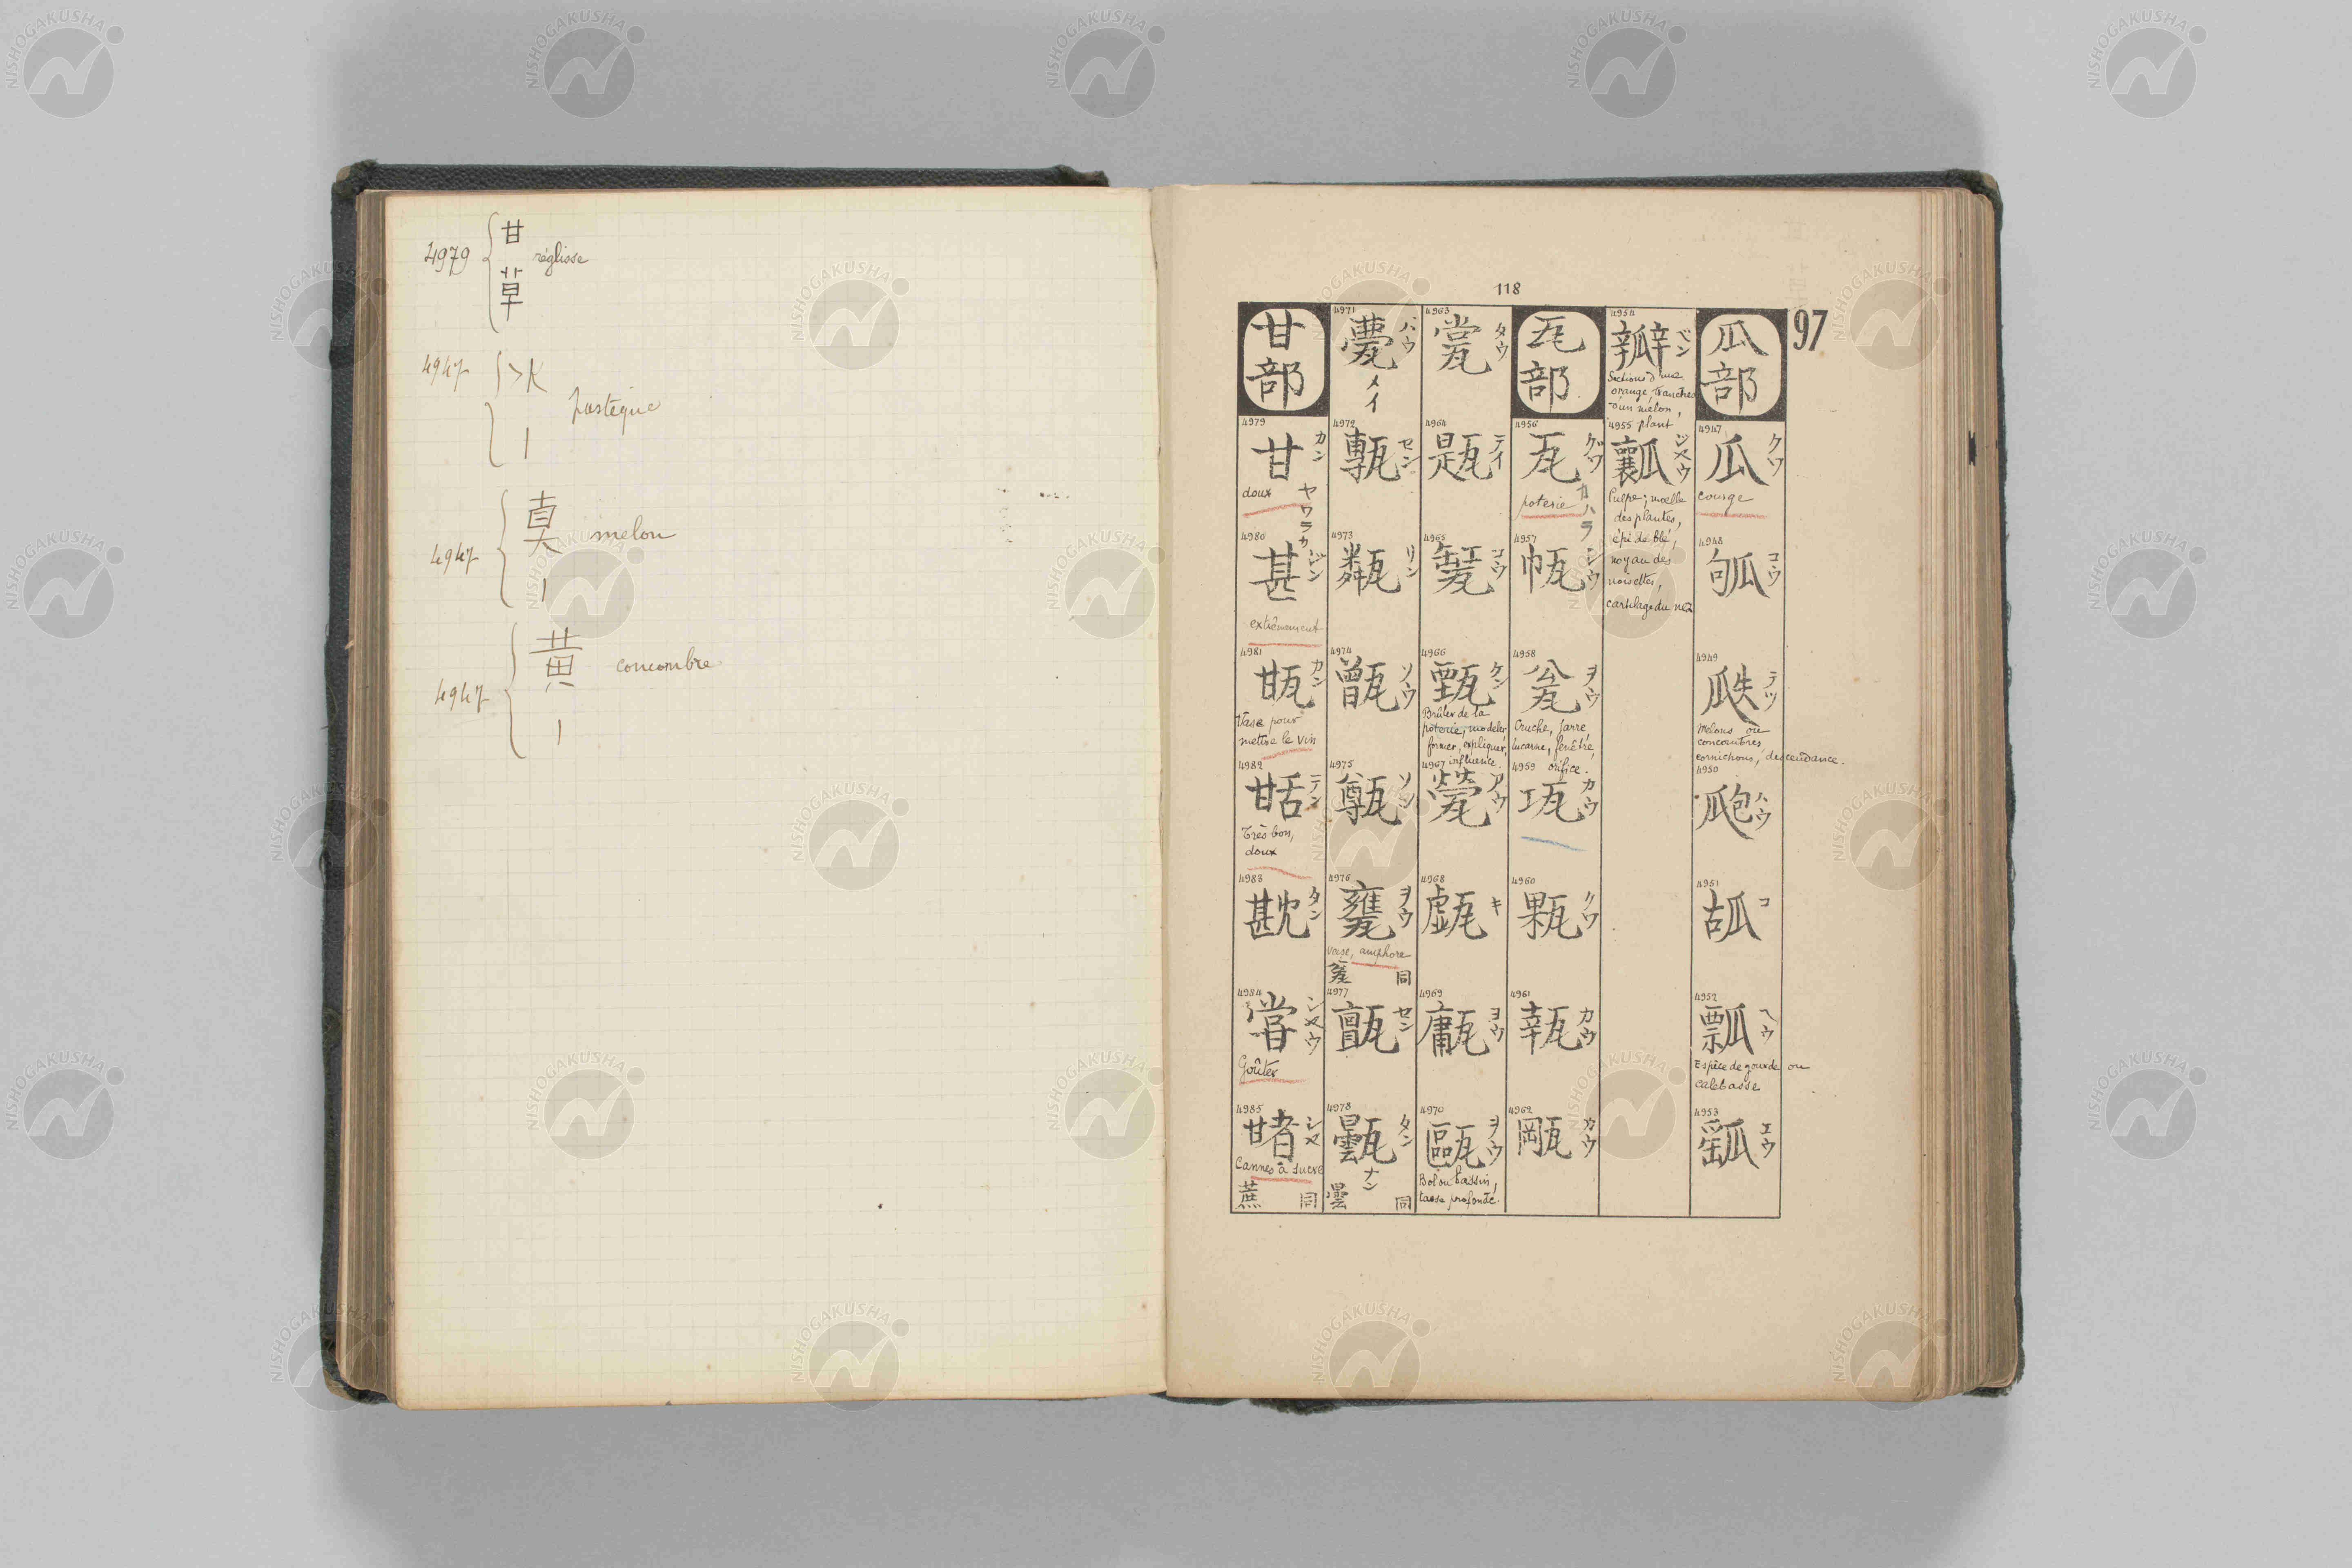 4979 甘 草 réglisse
4947 氷 | pastèque
4947 真 | melon
4947 黄 | concombre
118
97
瓜部
4947 瓜 クワ
courge
4948 㼋 コウ
4949 瓞 テツ
Melons ou
concombres,
cornichons, descendance.
4950 瓟 ハウ
4951 𤫱 コ
4952 瓢 ヘウ
Espèce de gourde ou
calebasse
4953 䍃瓜 エウ
4954 瓣 ベン
Sections d'une
orange, tranches
d'un melon,
plant
4955 瓤 ジヤウ
Pulpe; moelle
des plantes,
épi de blé,
noyau des
noisettes,
cartilage du nez
瓦部
4956 瓦 グワ カハラ
poterie
4957 シウ
4958 瓮 ヲウ
Cruche, jarre,
lucarne, fenêtre,
orifice.
4959 瓨 カウ
4960 クワ
4961 カウ
4962 㼚 カウ
4963 タウ
4964 㼵 テイ
4965 コウ
4966 甄 ケン
Brûler de la
poterie, modeler,
former, expliquer,
influence.
4967 甇 アウ
4968 甈 キ
4969 㽯 ヨウ
4970 甌 ヲウ
Bol ou bassin,
tasse profonde.
4971 甍 バウ メイ
4972 甎 セン
4973 甐 リン
4974 甑 ソウ
4975 甒 ソン
4976 甕 ヲウ
vase, amphore
瓮 同
4977 セン
4978 罎 タン ナン
曇 同
甘部
4979 甘 カン ヤワラカ
doux
4980 甚 ジン
extrêmement
4981 㽏 カン
Vase pour
mettre le vin
4982 甛 テン
Très bon,
doux
4983 㽎 タン
4984 甞 シヤウ
Goûter
4985 シヤ
Cannes à sucre
蔗 同
NISHOGAKUSHA